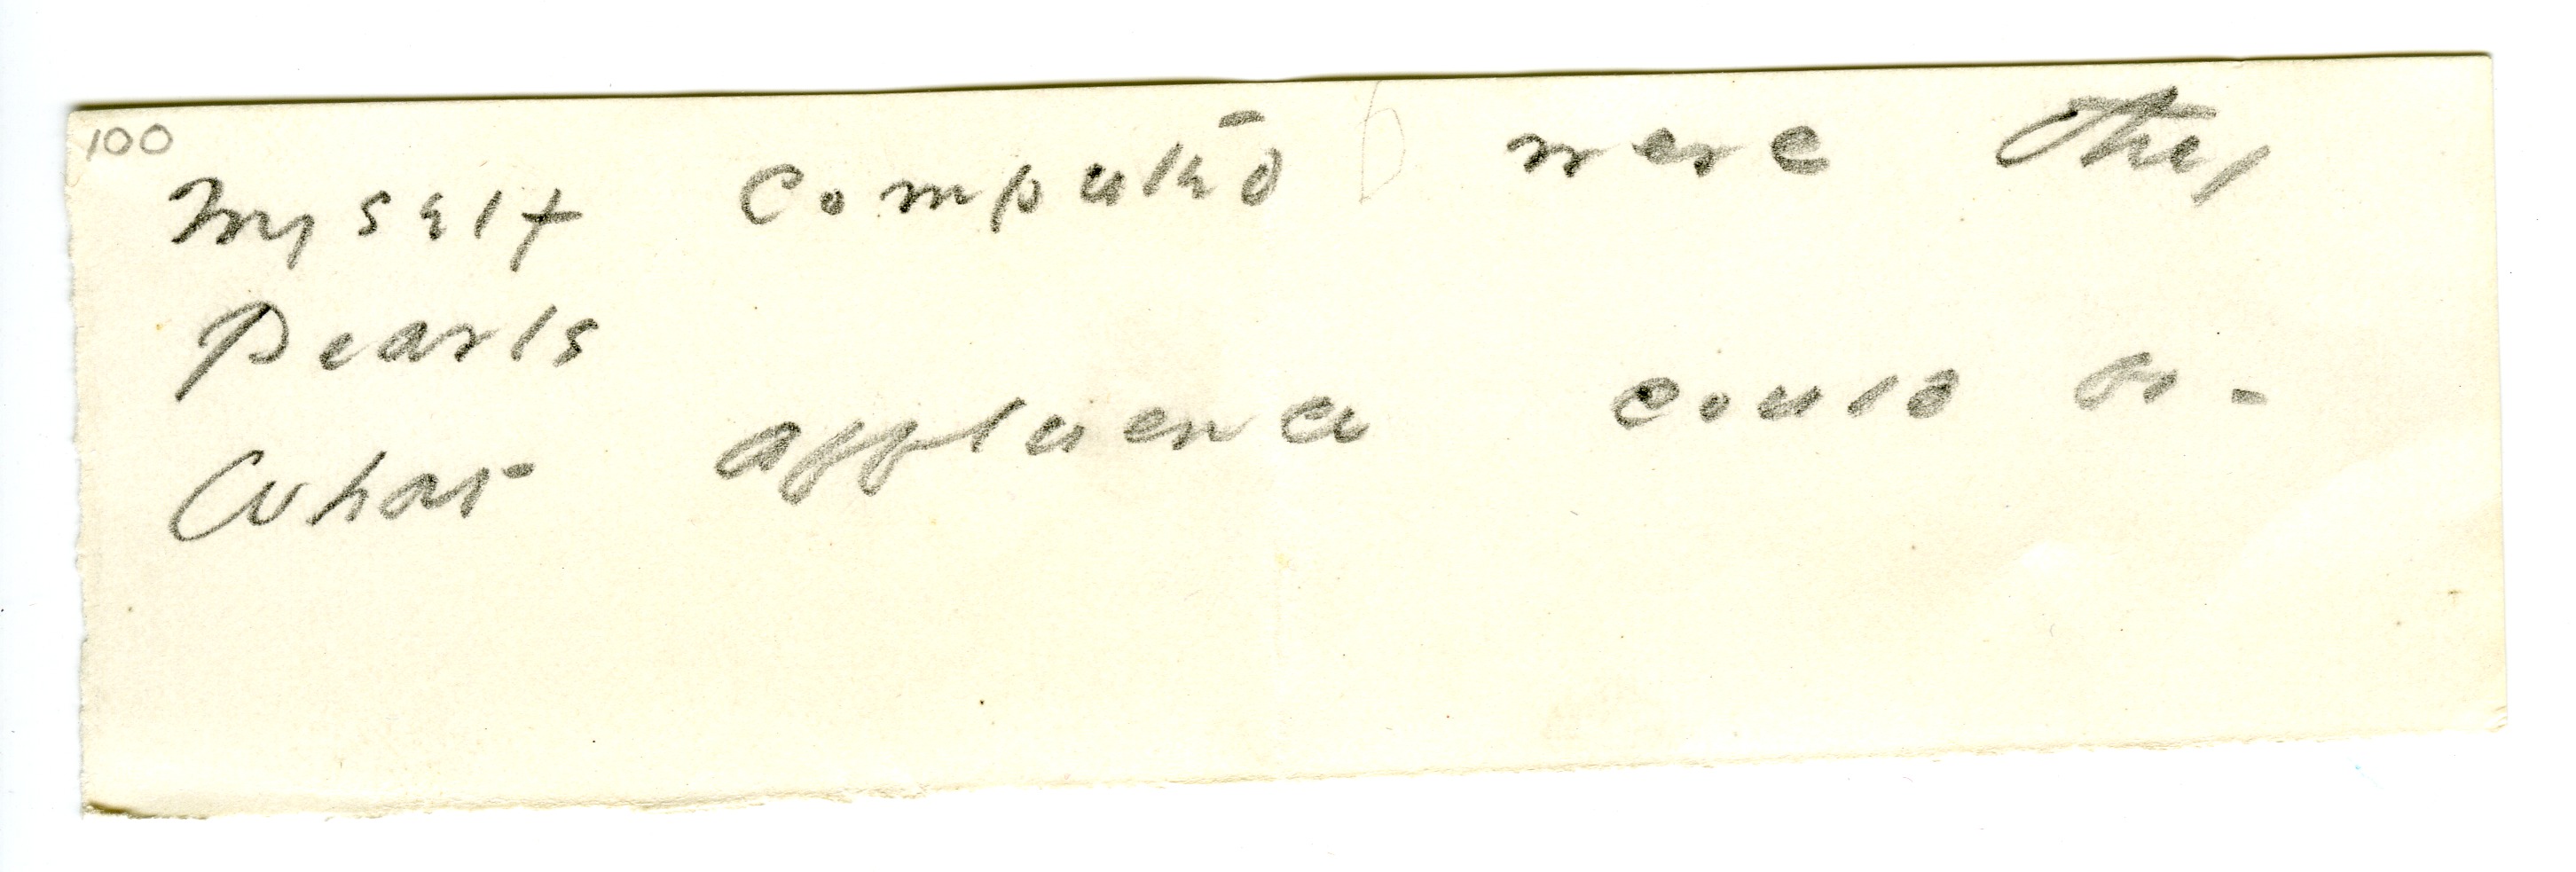 100
Myself computed were they
Pearls
What affluence could be -